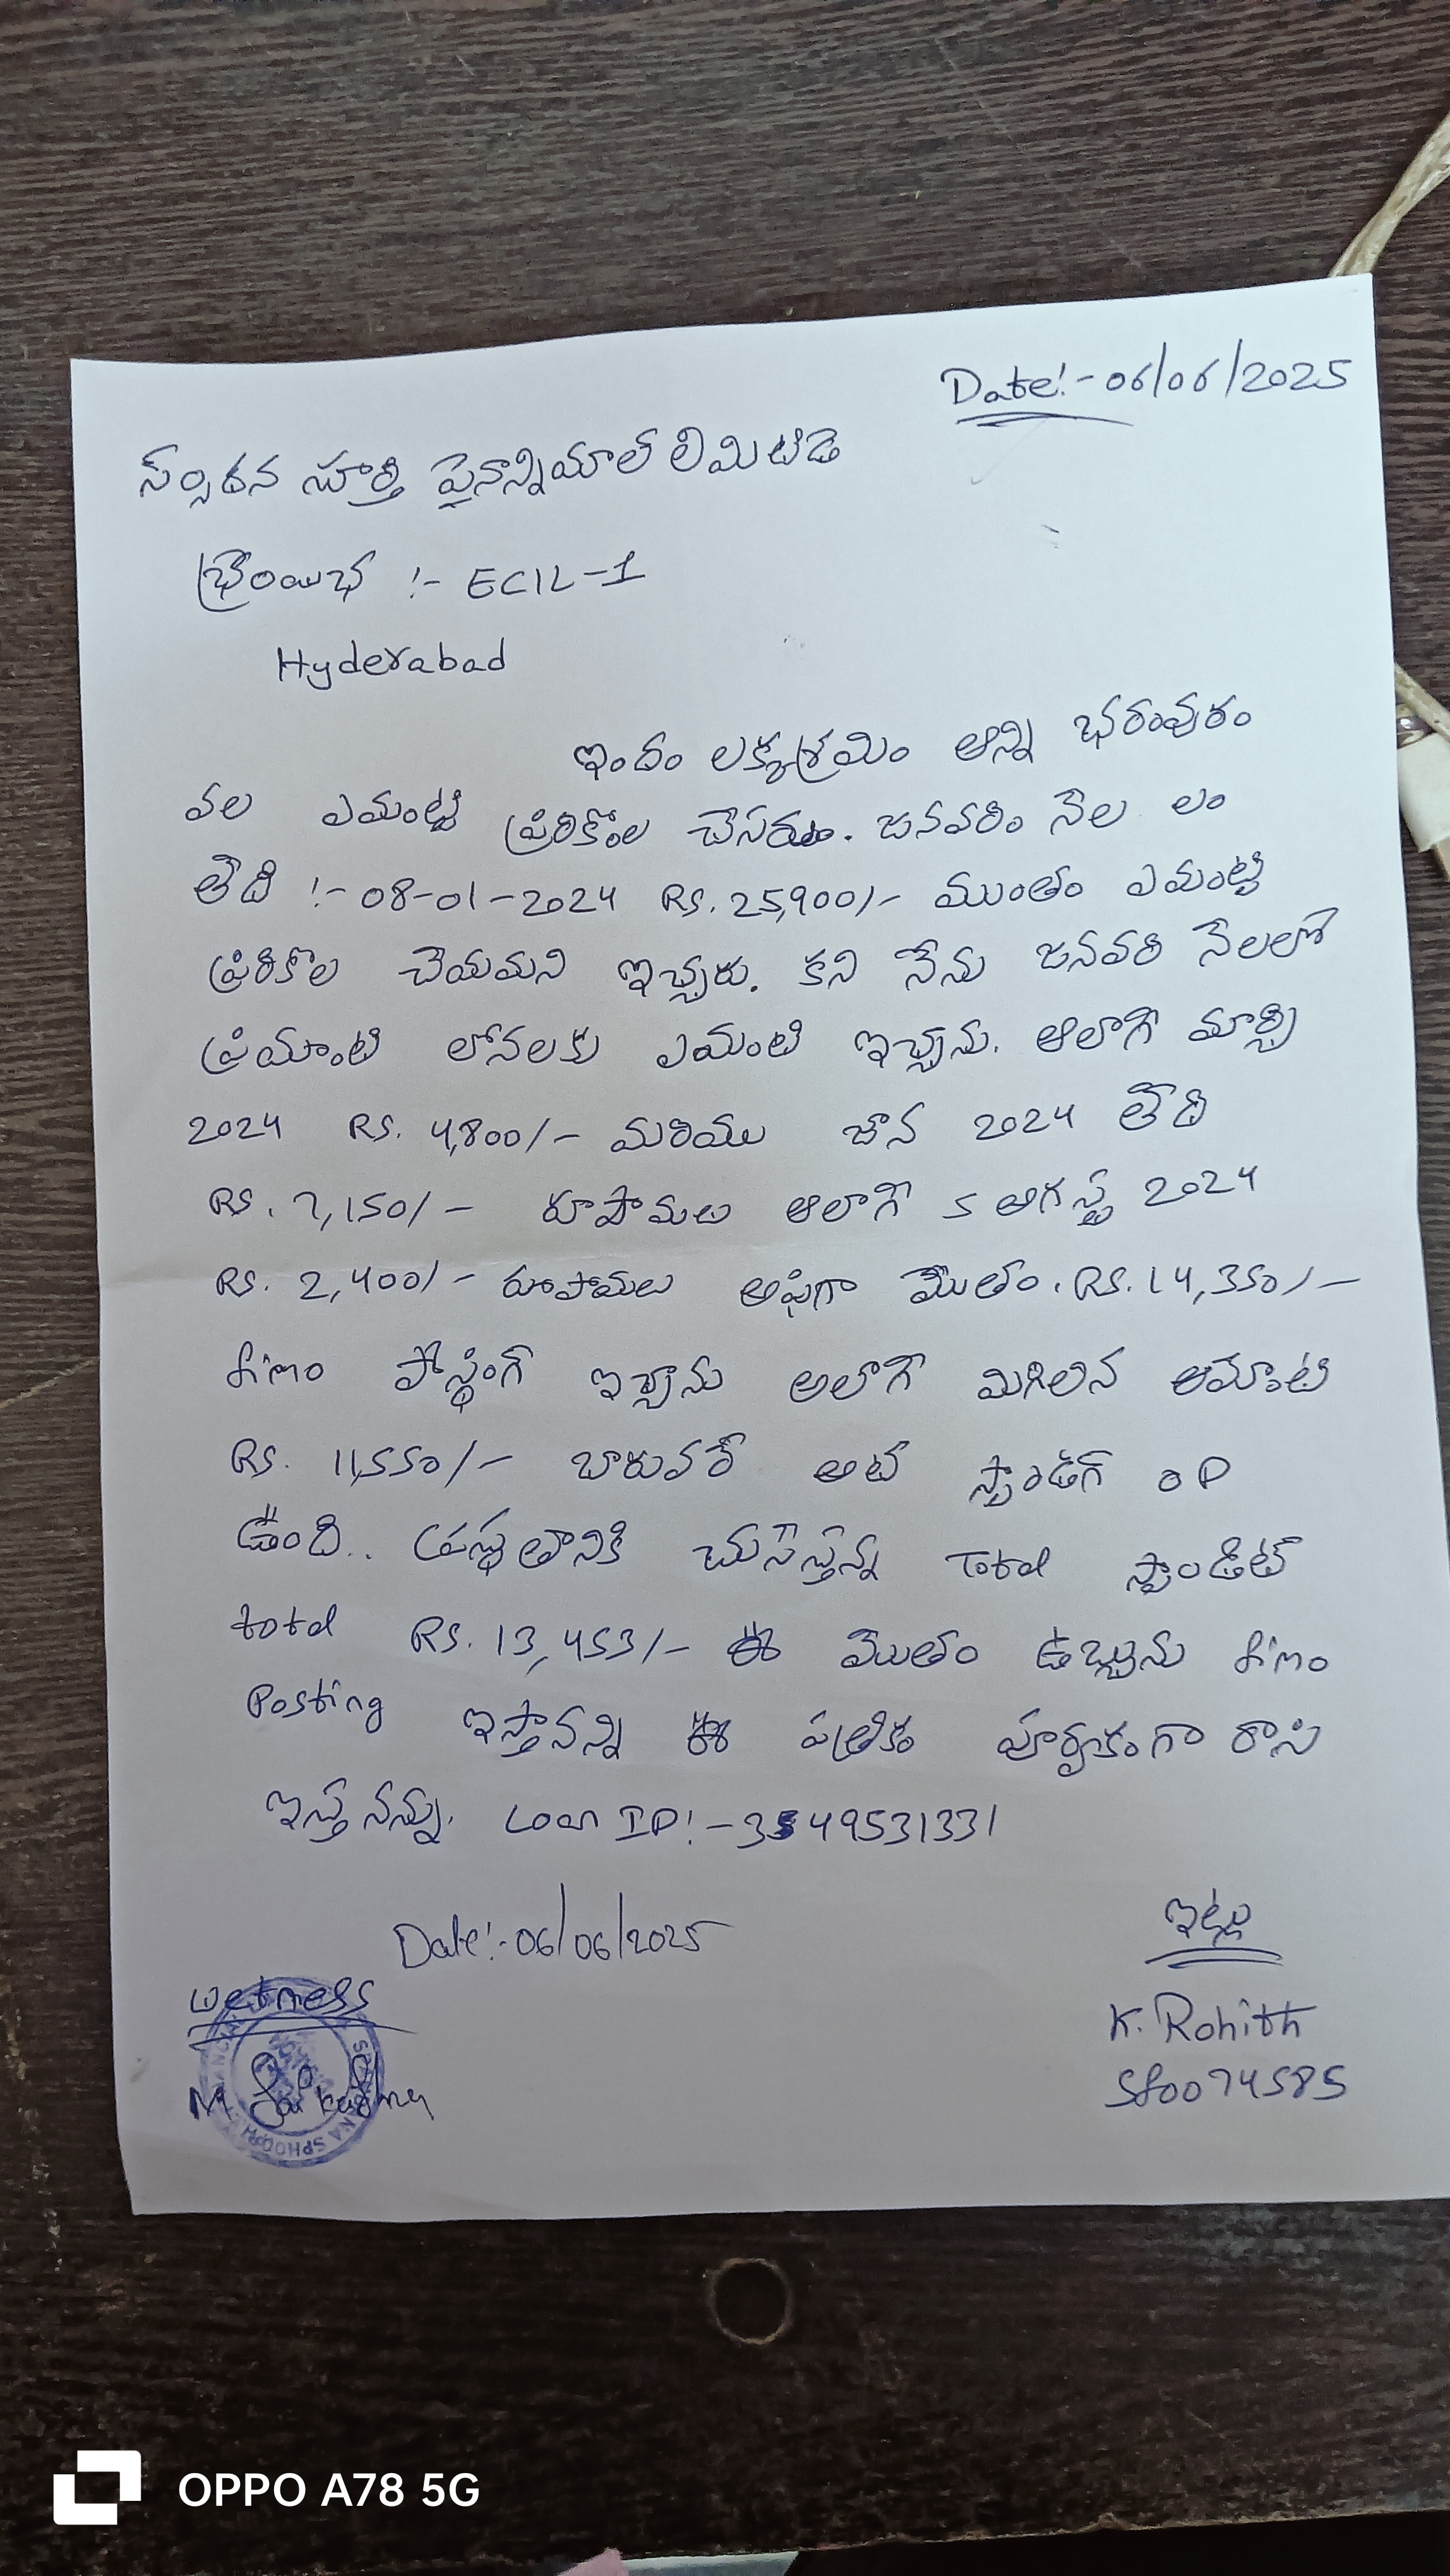 Date:- 06/06/2025
స్పందన స్పూర్తి ఫైనాన్సియాల్ లిమిటిడె
భ్రాంయిభ :- ECIL-1
Hyderabad
ఇందం లక్ష్మశ్రమిం అన్ని భరంవురం
వల ఎమంట్టి ప్రిరికోల చేసరుు. జనవరిం నెల లం
తేది :- 08-01-2024 RS. 25,900/- ముంతం ఎమంట్టి
ప్రిరికొల చేయమని ఇచ్చరు. కని నేను జనవరి నెలలో
ప్రియ్మాంటి లోనలకు ఎమంటి ఇచ్చను. ఆలాగే మార్చి
2024 RS. 4,800/- మరియు జూన 2024 తేది
RS. 7,150/- రూపాయలు ఆలాగే 5 ఆగస్ట్ 2024
RS. 2,400/- రూపాయలు అఫిగా మొతం. RS. 14,350/-
fimo పోస్టింగ్ ఇచ్చాను అలాగే మిగిలిన ఆమోంటి
RS. 11,550/- బారువరే అట స్టాండిగ్ OD
ఉంది.. ప్రస్థుతానికి చుసేస్తన్న Total స్టాండిట్
total RS. 13,453/- ఈ మొతం ఉబ్బును fimo
Posting ఇస్తానన్ని ఈ పత్రికం పూర్వకంగా రాసి
ఇస్తనన్ను. Loan ID:- 3549531331
Date:- 06/06/2025
ఇట్లు
wetness
K. Rohith
SF0074585